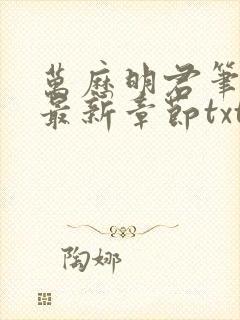 萬歷明君筆
最新章節txt
陶娜